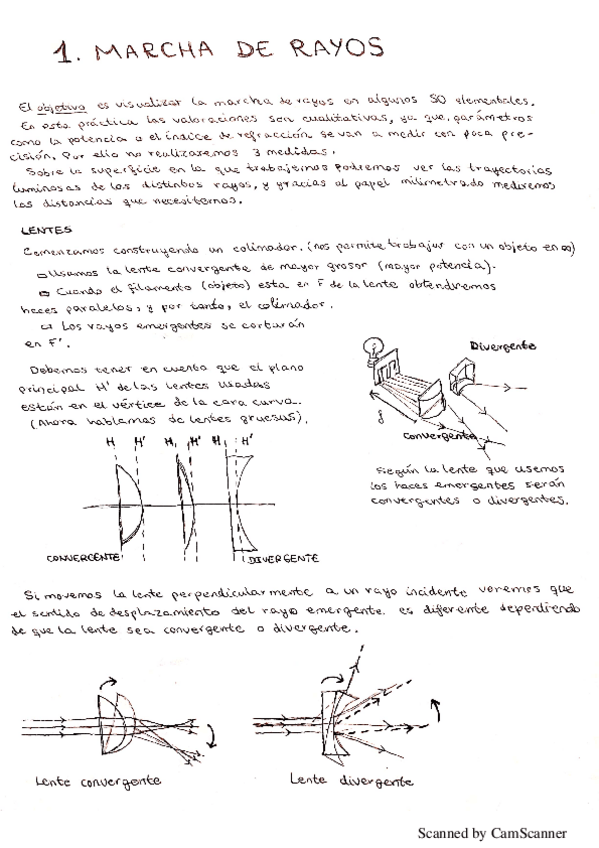 1. MARCHA DE RAYOS
El objetivo es visualizar la marcha de rayos en algunos SO elementales.
En esta práctica las valoraciones son cualitativas, ya que, parámetros
como la potencia o el índice de refracción se van a medir con poca pre-
cisión. Por ello no realizaremos 3 medidas.
Sobre la superficie en la que trabajemos podremos ver las trayectorias
luminosas de los distintos rayos, y gracias al papel milimetrado mediremos
las distancias que necesitemos.
LENTES
Comenzamos construyendo un colimador. (nos permite trabajar con un objeto en ∞)
Usamos la lente convergente de mayor grosor (mayor potencia).
Cuando el filamento (objeto) esta en F de la lente obtendremos
haces paralelos, y por tanto, el colimador.
Los rayos emergentes se cortarán
en F'.
Debemos tener en cuenta que el plano
principal H' de las lentes usadas
están en el vértice de la cara curva.
(Ahora hablamos de lentes gruesas).
Divergente
f
Convergente
H H' H H' H H'
CONVERGENTE DIVERGENTE
Según la lente que usemos
los haces emergentes serán
convergentes o divergentes.
Si movemos la lente perpendicularmente a un rayo incidente veremos que
el sentido de desplazamiento del rayo emergente es diferente dependiendo
de que la lente sea convergente o divergente.
Lente convergente Lente divergente
Scanned by CamScanner